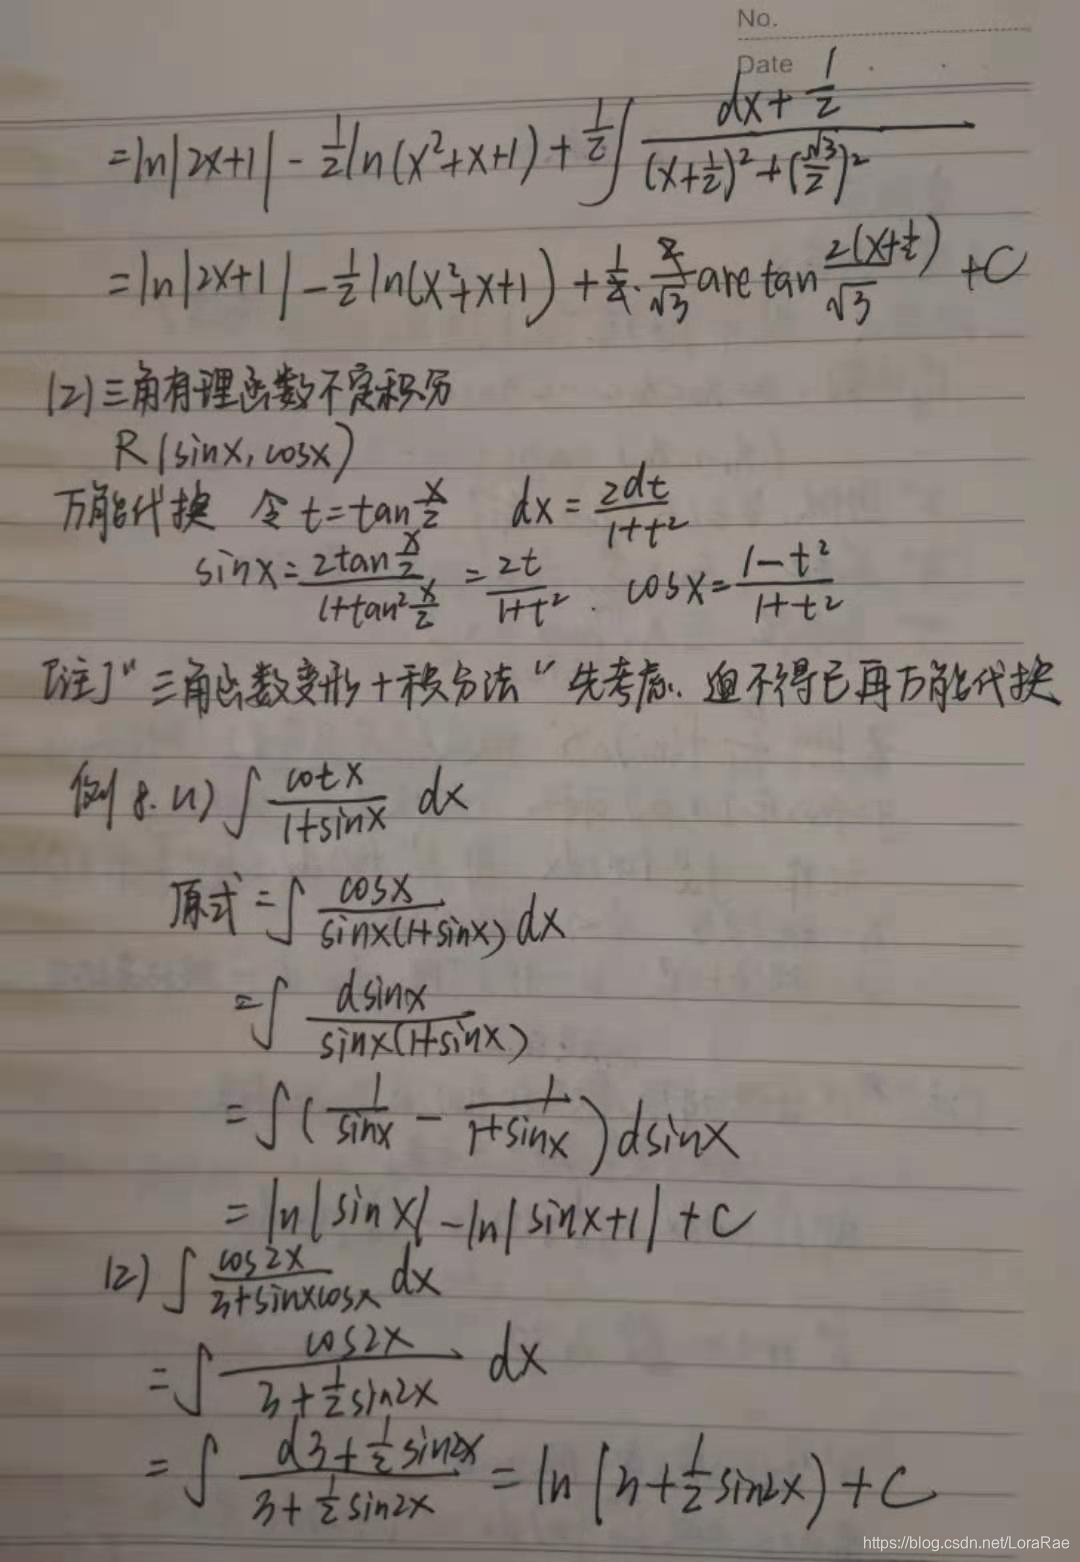 No.
Date
=ln|2x+1| - 1/2 ln(x²+x+1) + 1/2 ∫ dx+1/2 / ((x+1/2)²+(√3/2)²)
=ln|2x+1| - 1/2 ln(x²+x+1) + 1/2 · 2/√3 arctan 2(x+1/2)/√3 + C
(2) 三角有理函数不定积分
R(sinx, cosx)
万能代换 令 t=tan x/2 dx = 2dt/(1+t²)
sinx = 2tan x/2 / (1+tan² x/2) = 2t/(1+t²). cosx = (1-t²)/(1+t²)
[注]"三角函数变形+积分法" 先考虑. 迫不得已再万能代换
例8. (1) ∫ cotx/(1+sinx) dx
原式 = ∫ cosx/(sinx(1+sinx)) dx
= ∫ dsinx/(sinx(1+sinx))
= ∫ (1/sinx - 1/(1+sinx)) dsinx
= ln|sinx| - ln|sinx+1| + C
(2) ∫ cos2x/(3+sinxcosx) dx
= ∫ cos2x/(3+1/2 sin2x) dx
= ∫ d3+1/2 sin2x / (3+1/2 sin2x) = ln(3+1/2 sin2x) + C
https://blog.csdn.net/LoraRae